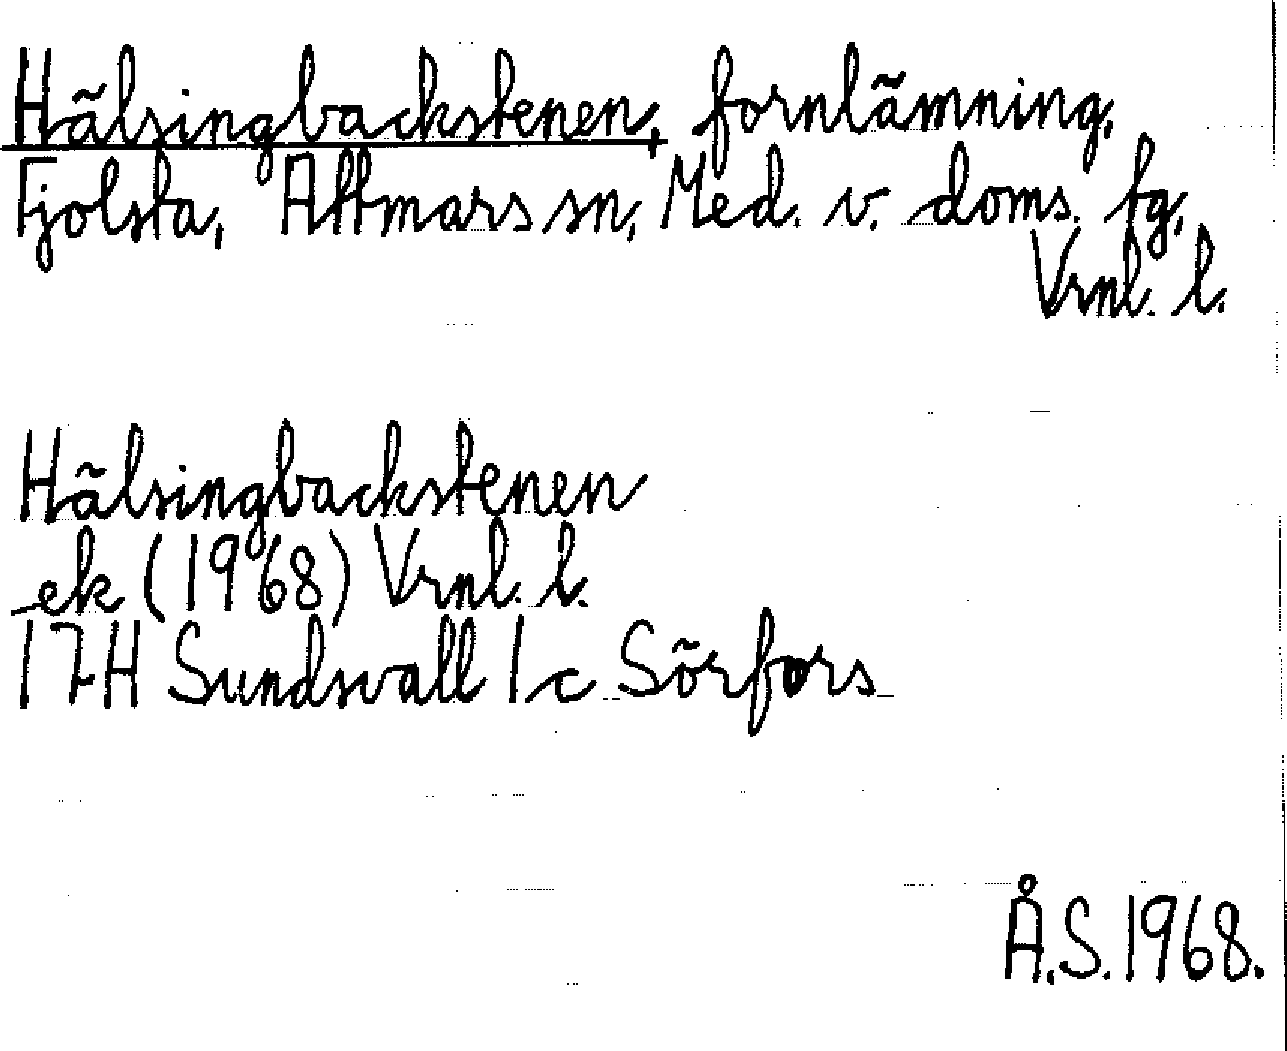 Hälsingbackstenen, fornlämning,
Fjolsta, Attmars sn, Med. v. doms. tg,
Vrnl. l.
Hälsingbackstenen
ek (1968) Vrnl. l.
17H Sundsvall 1c Sörfors
Å.S. 1968.